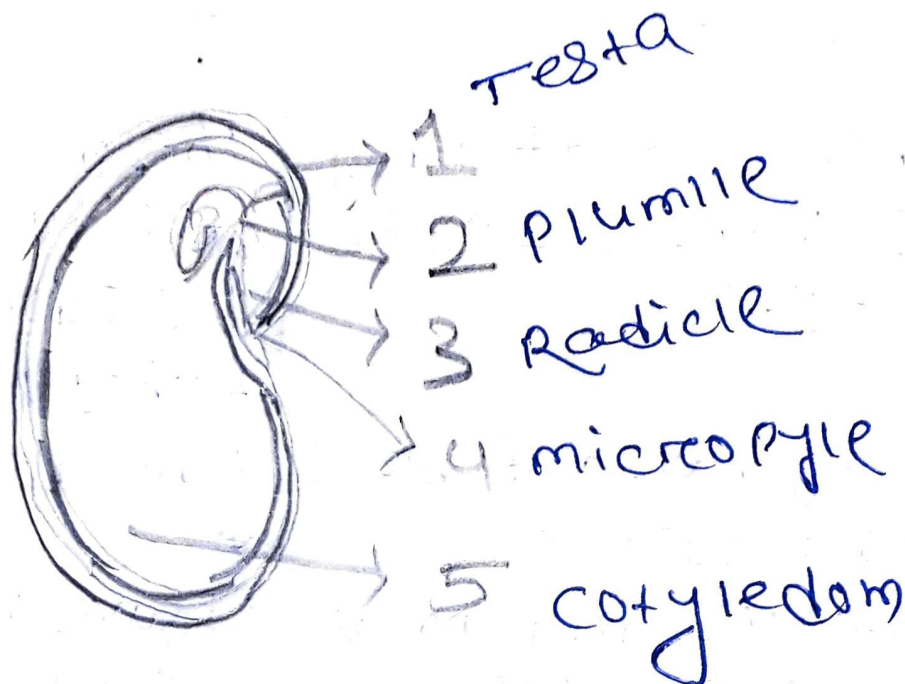 Testa
1
2 Plumlle
3 Radicle
4 micropyle
5 cotyledom